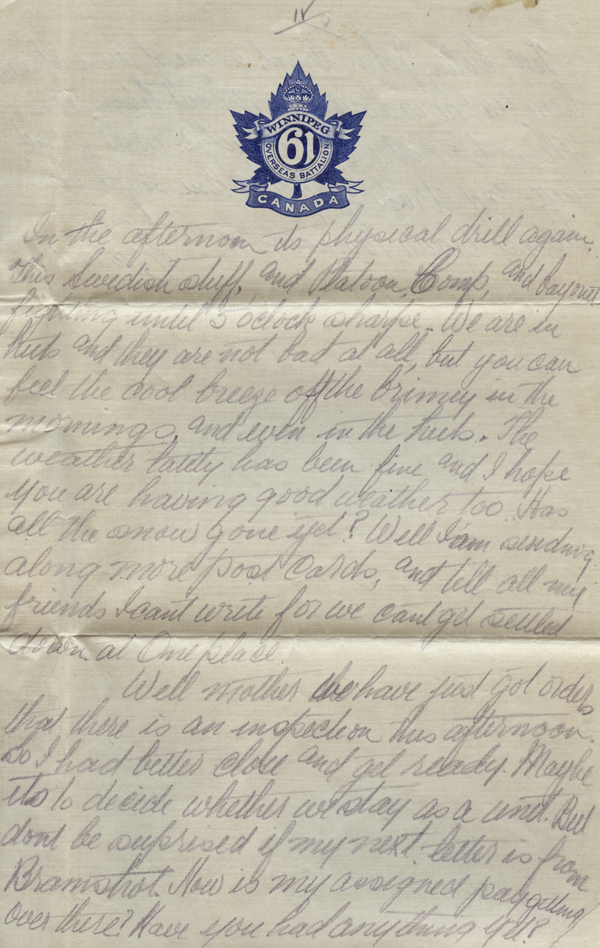 IV
WINNIPEG
61
OVERSEAS BATTALION
CANADA
In the afternoon its physical drill again,
this Swedish stuff, and Platoon, Comp, and bayonet
fighting until 5 oclock sharpe. We are in
huts and they are not bad at all, but you can
feel the cool breeze off the briney in the
mornings, and even in the huts. The
weather lately has been fine and I hope
you are having good weather too. Has
all the snow gone yet? Well I am sending
along more post cards, and tell all my
friends I cant write for we cant get settled
down at One place.
Well mother we have just got orders
that there is an inspection this afternoon.
so I had better close and get ready. Maybe
its to decide whether we stay as a unit. But
dont be suprised if my next letter is from
Bramshot. Now is my assigned pay getting
over there? Have you had anything yet?